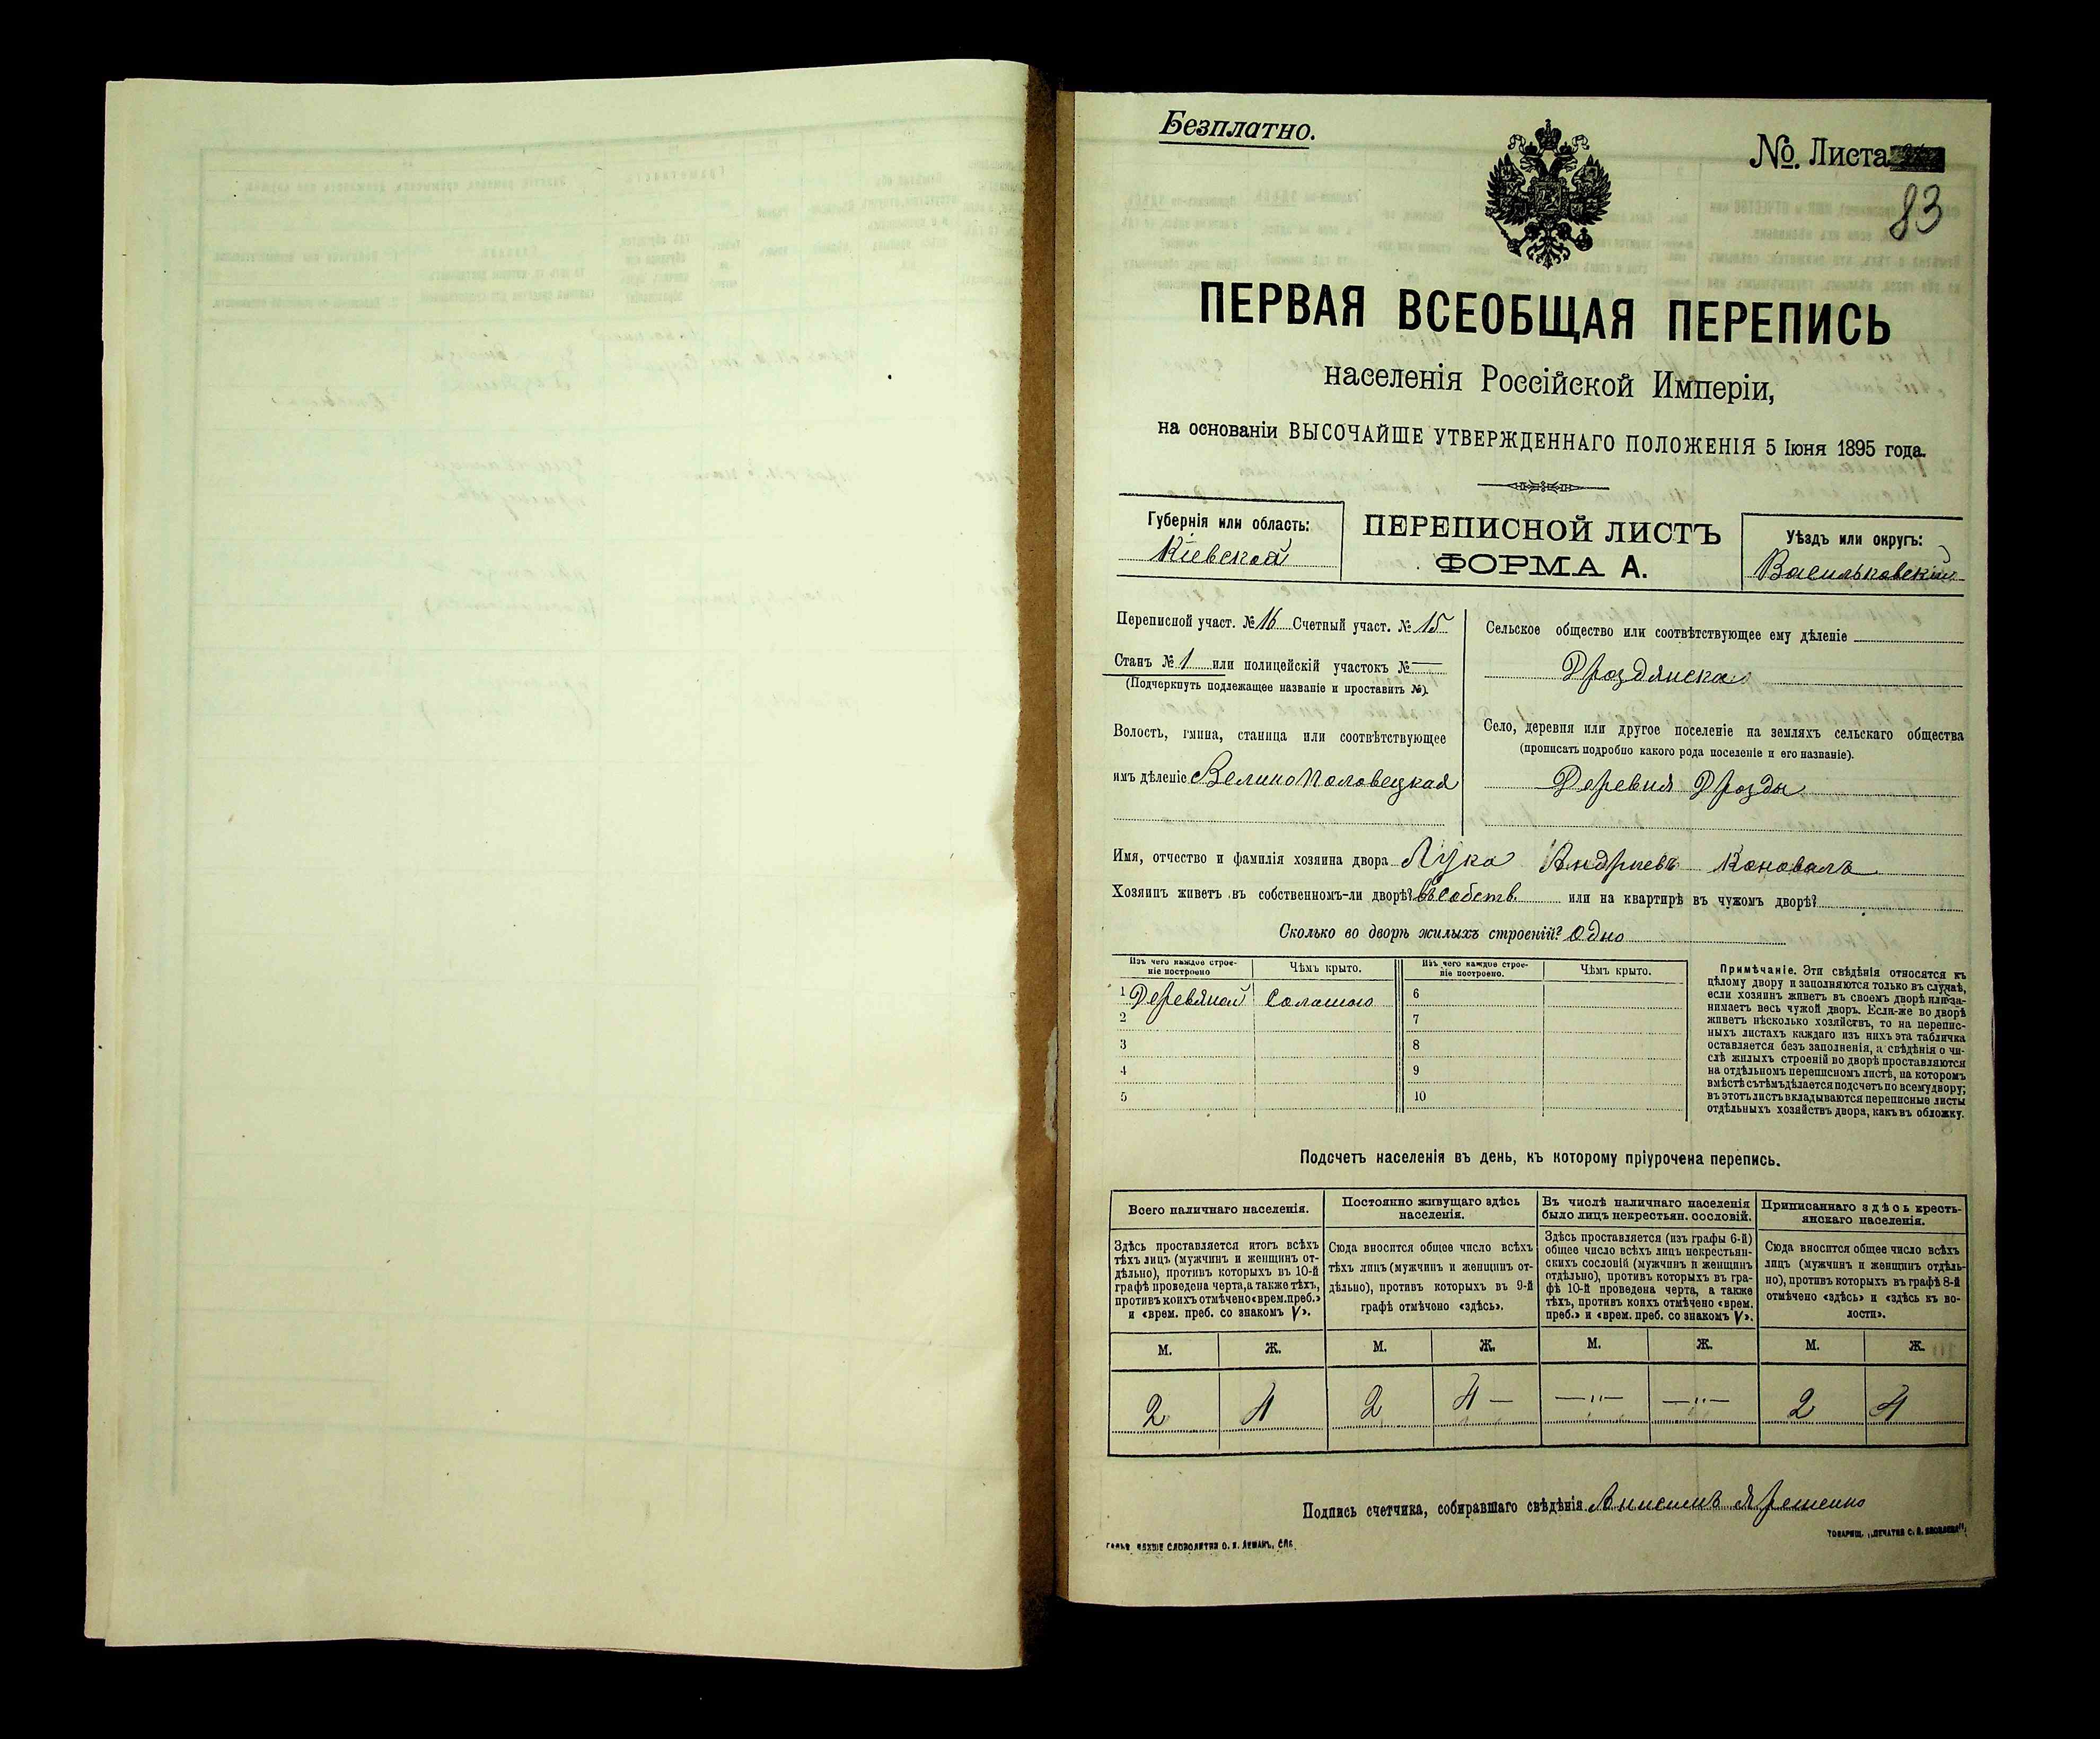 Безплатно.
№. Листа
83
ПЕРВАЯ ВСЕОБЩАЯ ПЕРЕПИСЬ
населенія Россійской Имперіи,
на основаніи ВЫСОЧАЙШЕ УТВЕРЖДЕННАГО ПОЛОЖЕНІЯ 5 Іюня 1895 года.
Губернія или область:
Кіевской
ПЕРЕПИСНОЙ ЛИСТЪ
ФОРМА А.
Уѣздъ или округъ:
Васильковскій
Переписной участ. № 16 Счетный участ. № 15
Станъ № 1 или полицейскій участокъ № —
(Подчеркнуть подлежащее названіе и проставить №).
Волость, гмина, станица или соотвѣтствующее
имъ дѣленіе Великополовецкая
Сельское общество или соотвѣтствующее ему дѣленіе
Дроздянска
Село, деревня или другое поселеніе на земляхъ сельскаго общества
(прописать подробно какого рода поселеніе и его названіе).
Деревня Дрозды
Имя, отчество и фамилія хозяина двора Лука Андриевъ Коновалъ
Хозяинъ живетъ въ собственномъ-ли дворѣ? въ собств. или на квартирѣ въ чужомъ дворѣ?
Сколько во дворѣ жилыхъ строеній? Одно
Изъ чего каждое строе-
ніе построено
Чѣмъ крыто.
Изъ чего каждое строе-
ніе построено.
Чѣмъ крыто.
1 Деревяной Соломою
2
3
4
5
6
7
8
9
10
Примѣчаніе. Эти свѣдѣнія относятся къ
цѣлому двору и заполняются только въ случаѣ,
если хозяинъ живетъ въ своемъ дворѣ или за-
нимаетъ весь чужой дворъ. Если-же во дворѣ
живетъ нѣсколько хозяйствъ, то на перепис-
ныхъ листахъ каждаго изъ нихъ эта табличка
оставляется безъ заполненія, а свѣдѣнія о чи-
слѣ жилыхъ строеній во дворѣ проставляются
на отдѣльномъ переписномъ листѣ, на которомъ
вмѣстѣ съ тѣмъ дѣлается подсчетъ по всему двору;
въ этотъ листъ вкладываются переписные листы
отдѣльныхъ хозяйствъ двора, какъ въ обложку.
Подсчетъ населенія въ день, къ которому пріурочена перепись.
Всего наличнаго населенія.
Здѣсь проставляется итогъ всѣхъ
тѣхъ лицъ (мужчинъ и женщинъ от-
дѣльно), противъ которыхъ въ 10-й
графѣ проведена черта, а также тѣхъ,
противъ коихъ отмѣчено «врем. преб.»
и «врем. преб. со знакомъ V».
Постоянно живущаго здѣсь
населенія.
Сюда вносится общее число всѣхъ
тѣхъ лицъ (мужчинъ и женщинъ от-
дѣльно), противъ которыхъ въ 9-й
графѣ отмѣчено «здѣсь».
Въ числѣ наличнаго населенія
было лицъ некрестьян. сословій.
Здѣсь проставляется (изъ графы 6-й)
общее число всѣхъ лицъ некрестьян-
скихъ сословій (мужчинъ и женщинъ
отдѣльно), противъ которыхъ въ гра-
фѣ 10-й проведена черта, а также
тѣхъ, противъ коихъ отмѣчено «врем.
преб.» и «врем. преб. со знакомъ V».
Приписаннаго здѣсь кресть-
янскаго населенія.
Сюда вносится общее число всѣхъ
лицъ (мужчинъ и женщинъ отдѣль-
но), противъ которыхъ въ графѣ 8-й
отмѣчено «здѣсь» и «здѣсь въ во-
лости».
М. Ж. М. Ж. М. Ж. М. Ж.
2 4 2 4 — —"— —"— 2 4
Подпись счетчика, собиравшаго свѣдѣнія Анисимъ Яременко
СЛОВОЛИТНЯ О. И. ЛЕМАНЪ, СПБ.
ТОВАРИЩ. „ПЕЧАТНЯ С. П. ЯКОВЛЕВА"